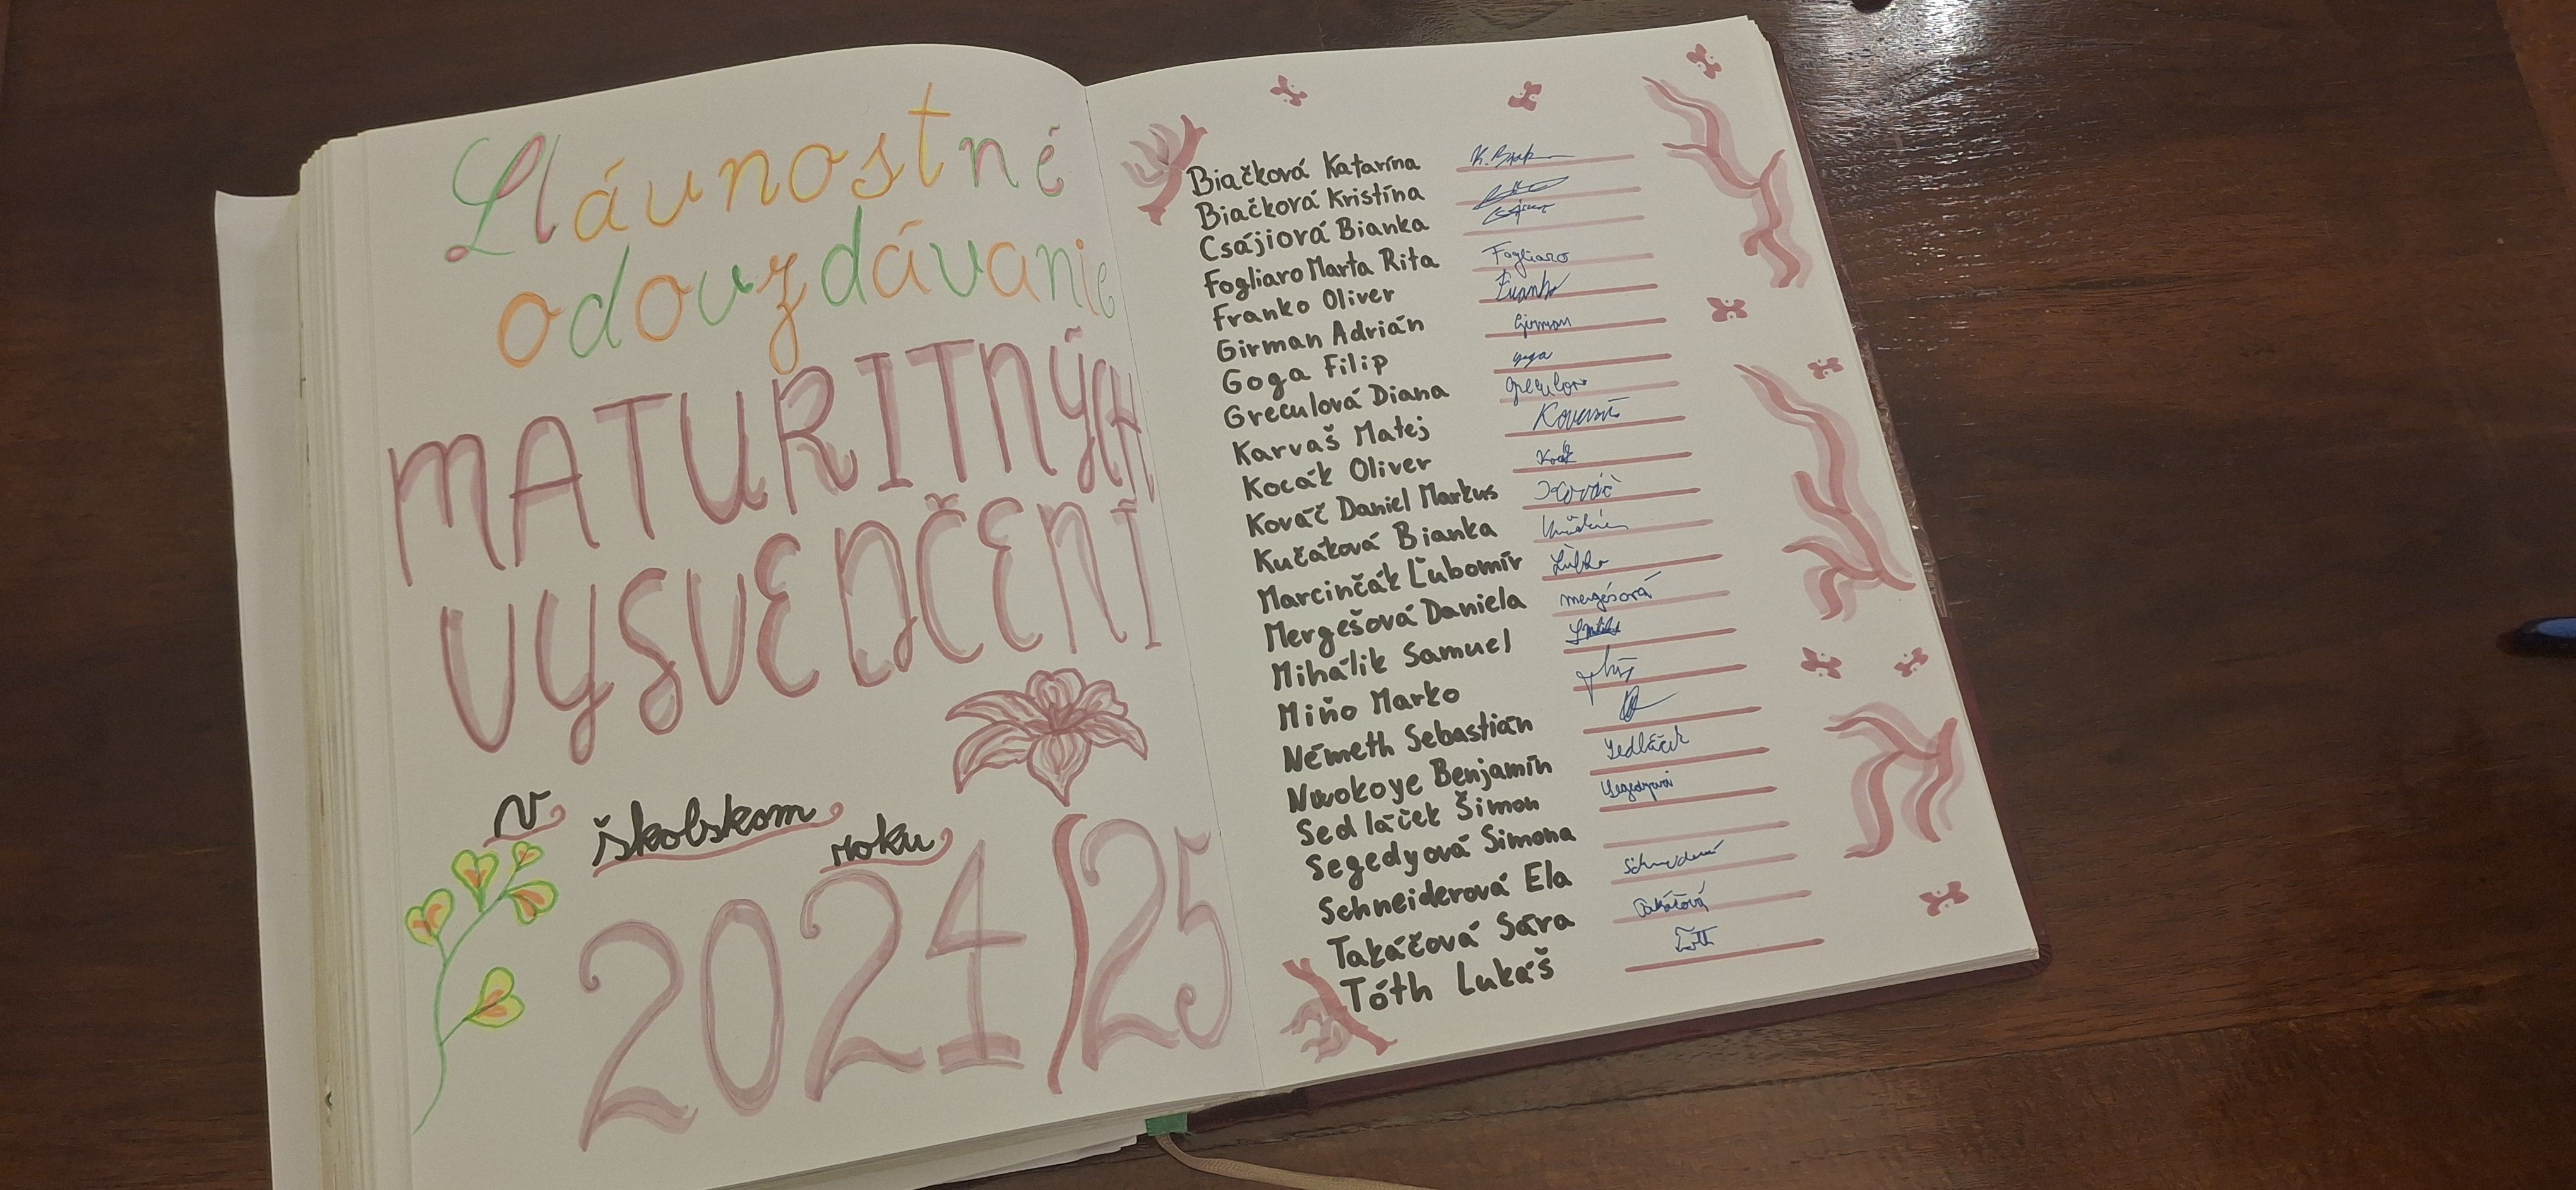 Slávnostné
odovzdávanie
MATURITNÝCH
VYSVEDČENÍ
v školskom roku
2024/25
Biačková Katarína K. Biač
Biačková Kristína
Csájiová Bianka
Fogliaro Marta Rita Fogliaro
Franko Oliver Franko
Girman Adrián Girman
Goga Filip Goga
Greculová Diana Greculová
Karvaš Matej
Kocák Oliver Kocák
Kováč Daniel Markus Kováč
Kučáková Bianka
Marcinčák Ľubomír
Mergešová Daniela Mergešová
Mihálik Samuel
Miňo Marko
Németh Sebastián
Nwokoye Benjamín
Sedláček Šimon Sedláček
Segedyová Simona Segedyová
Schneiderová Ela
Takáčová Sára Takáčová
Tóth Lukáš Tóth